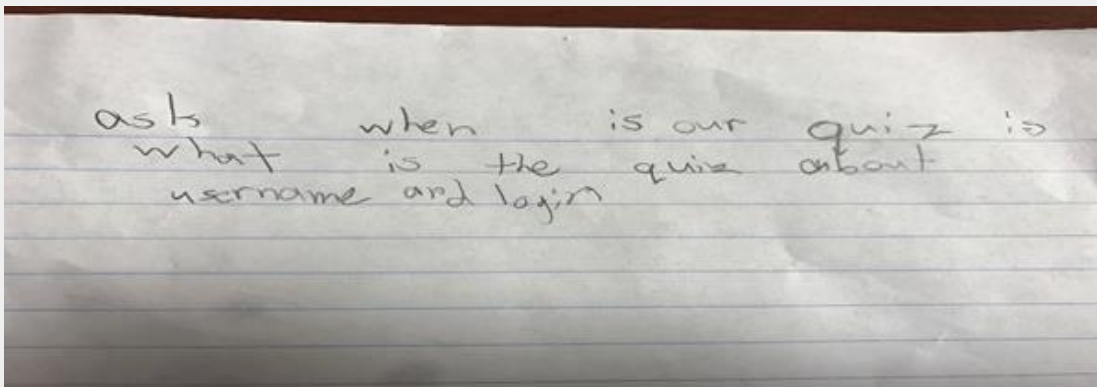 ask when is our quiz is
what is the quiz about
username and login